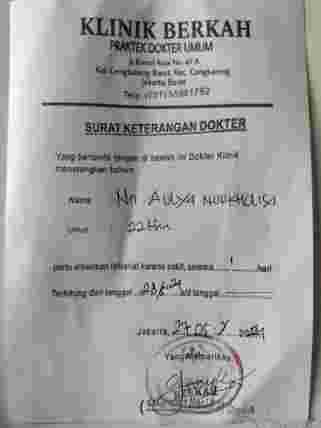 KLINIK BERKAH
PRAKTEK DOKTER UMUM
Jl. Kamal Raya No. 47 A
Kel. Cengkareng Barat, Kec. Cengkareng
Jakarta Barat
Telp.
SURAT KETERANGAN DOKTER
Yang bertanda tangan di bawah ini Dokter Klinik
menerangkan bahwa
Nama Nn Aulya Nurkholisa
Umur 22 thn
perlu diberikan istirahat karena sakit, selama 1 hari
Terhitung dari tanggal s/d tanggal
Jakarta,
Yang Memeriksa